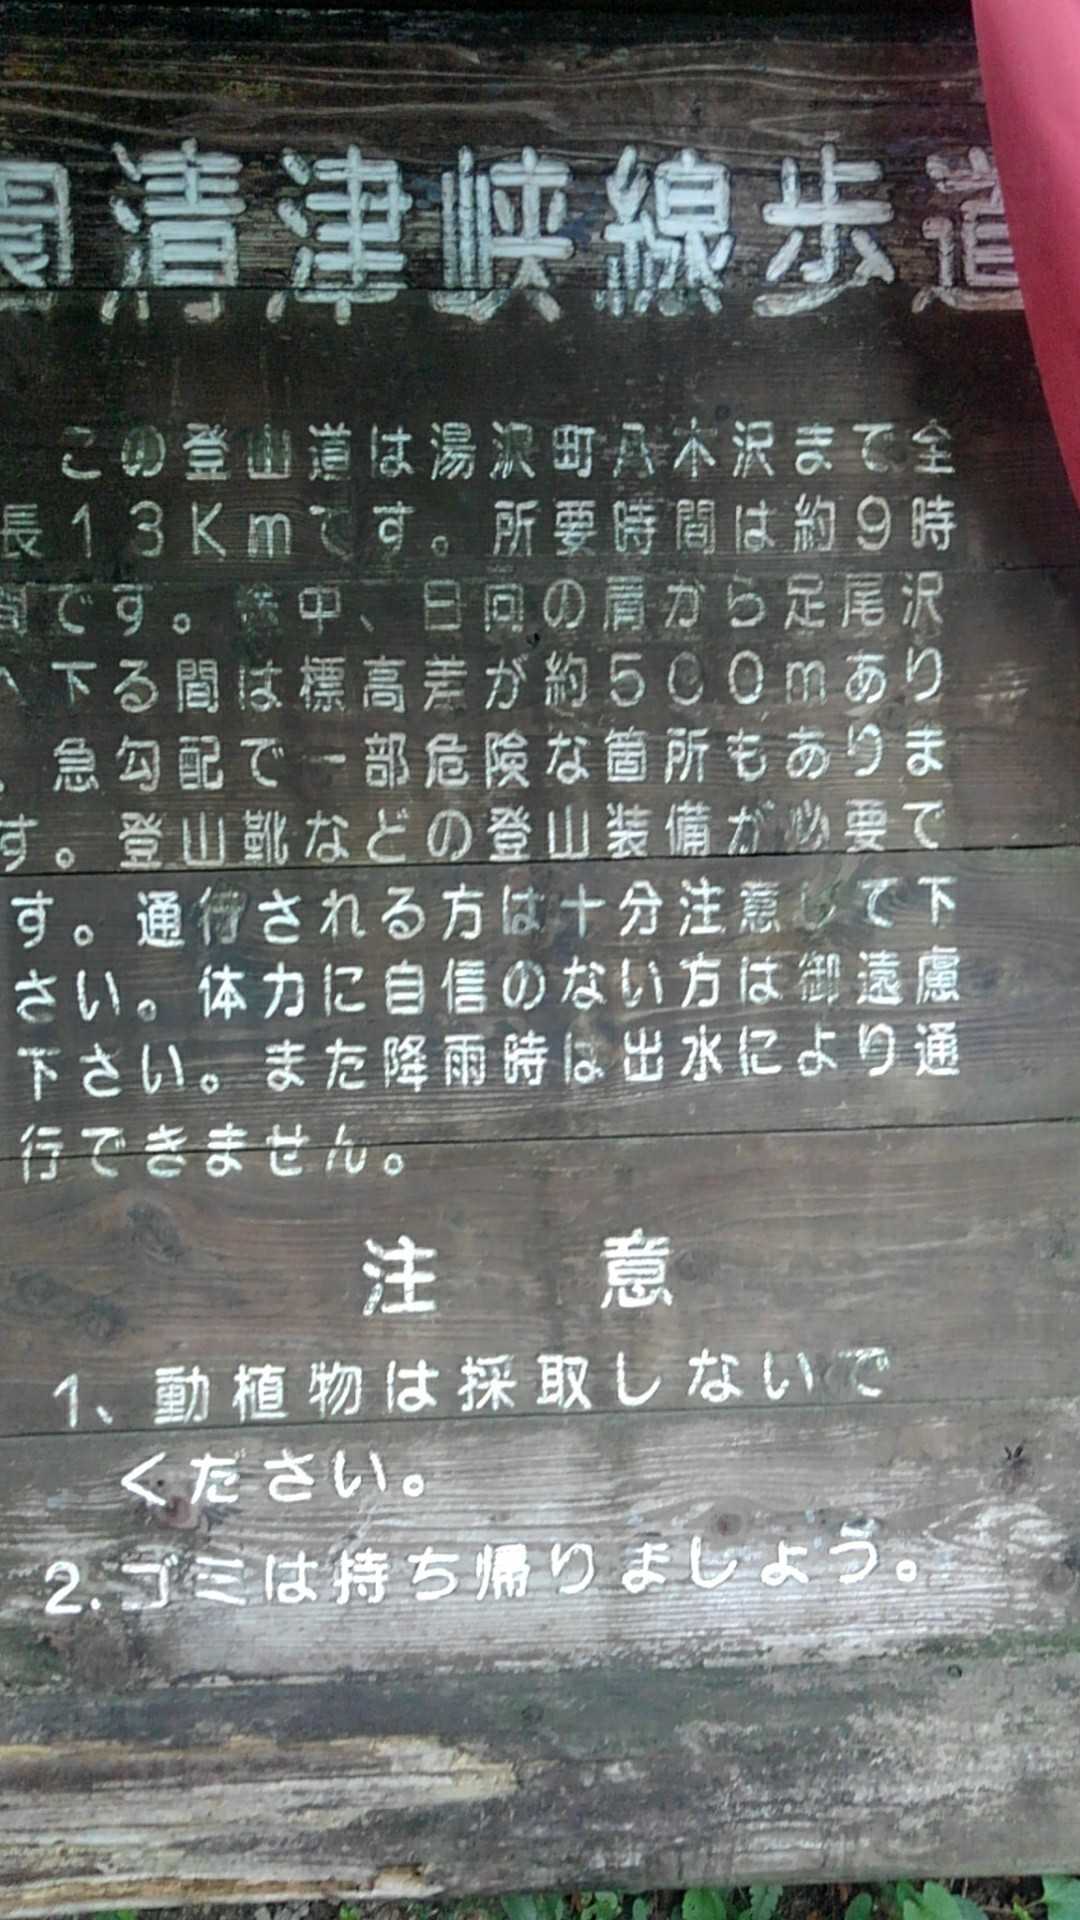 園清津峡線歩道
この登山道は湯沢町八木沢まで全
長13Kmです。所要時間は約9時
間です。途中、日向の肩から足尾沢
へ下る間は標高差が約500mあり
、急勾配で一部危険な箇所もありま
す。登山靴などの登山装備が必要で
す。通行される方は十分注意して下
さい。体力に自信のない方は御遠慮
下さい。また降雨時は出水により通
行できません。
注 意
1、動植物は採取しないで
ください。
2.ゴミは持ち帰りましょう。